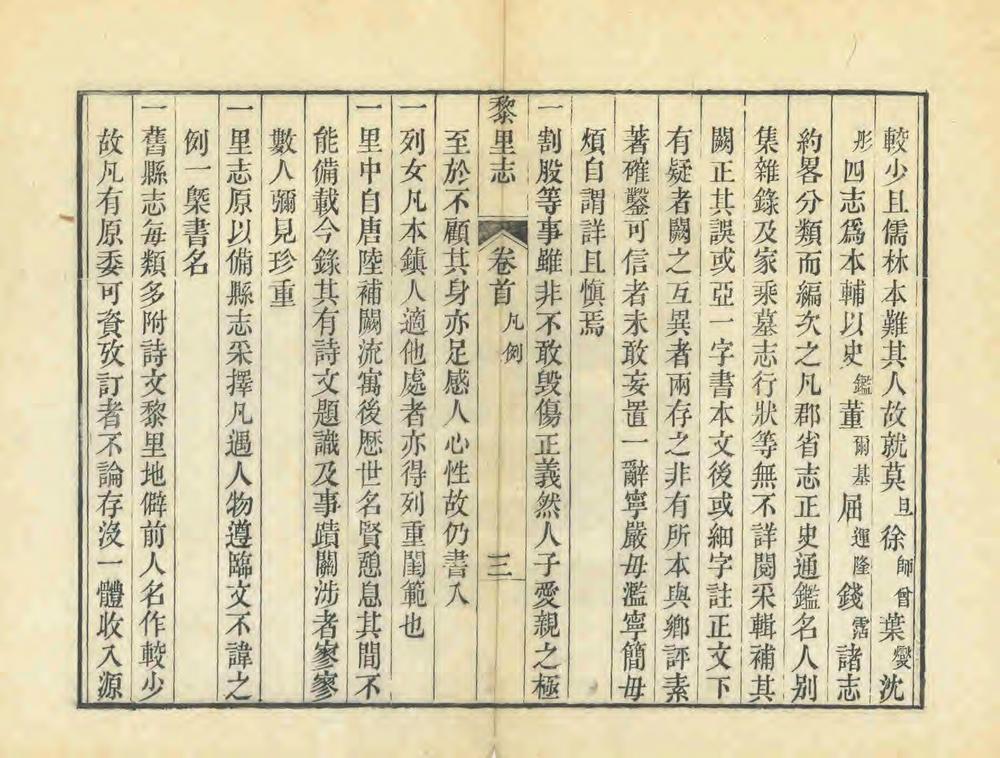 較少且儒林本難其人故就莫旦徐師曾葉燮沈
彤四志爲本輔以史鑑董爾基屈運隆錢霑諸志
約畧分類而編次之凡郡省志正史通鑑名人別
集雜錄及家乘墓志行狀等無不詳閱采輯補其
闕正其誤或亞一字書本文後或細字註正文下
有疑者闕之互異者兩存之非有所本與鄉評素
著確鑿可信者未敢妄置一辭寧嚴毋濫寧簡毋
煩自謂詳且愼焉
一割股等事雖非不敢毀傷正義然人子愛親之極
黎里志 卷首 凡例 三
至於不顧其身亦足感人心性故仍書入
一列女凡本鎭人適他處者亦得列重閨範也
一里中自唐陸補闕流寓後歷世名賢憩息其間不
能備載今錄其有詩文題識及事蹟關涉者寥寥
數人彌見珍重
一里志原以備縣志采擇凡遇人物遵臨文不諱之
例一槩書名
一舊縣志每類多附詩文黎里地僻前人名作較少
故凡有原委可資攷訂者不論存沒一體收入源